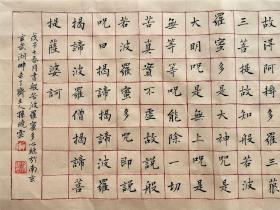 故得阿耨多羅三藐
三菩提故知般若波
羅蜜多是大神咒是
大明咒是無上咒是
無等等咒能除一切
苦真實不虛故說般
若波羅蜜多咒即說
咒曰揭諦揭諦波羅
揭諦波羅僧揭諦菩
提薩婆訶
戊子春月書般若波羅蜜多心經於南京
玄武湖畔主人孫曉雲